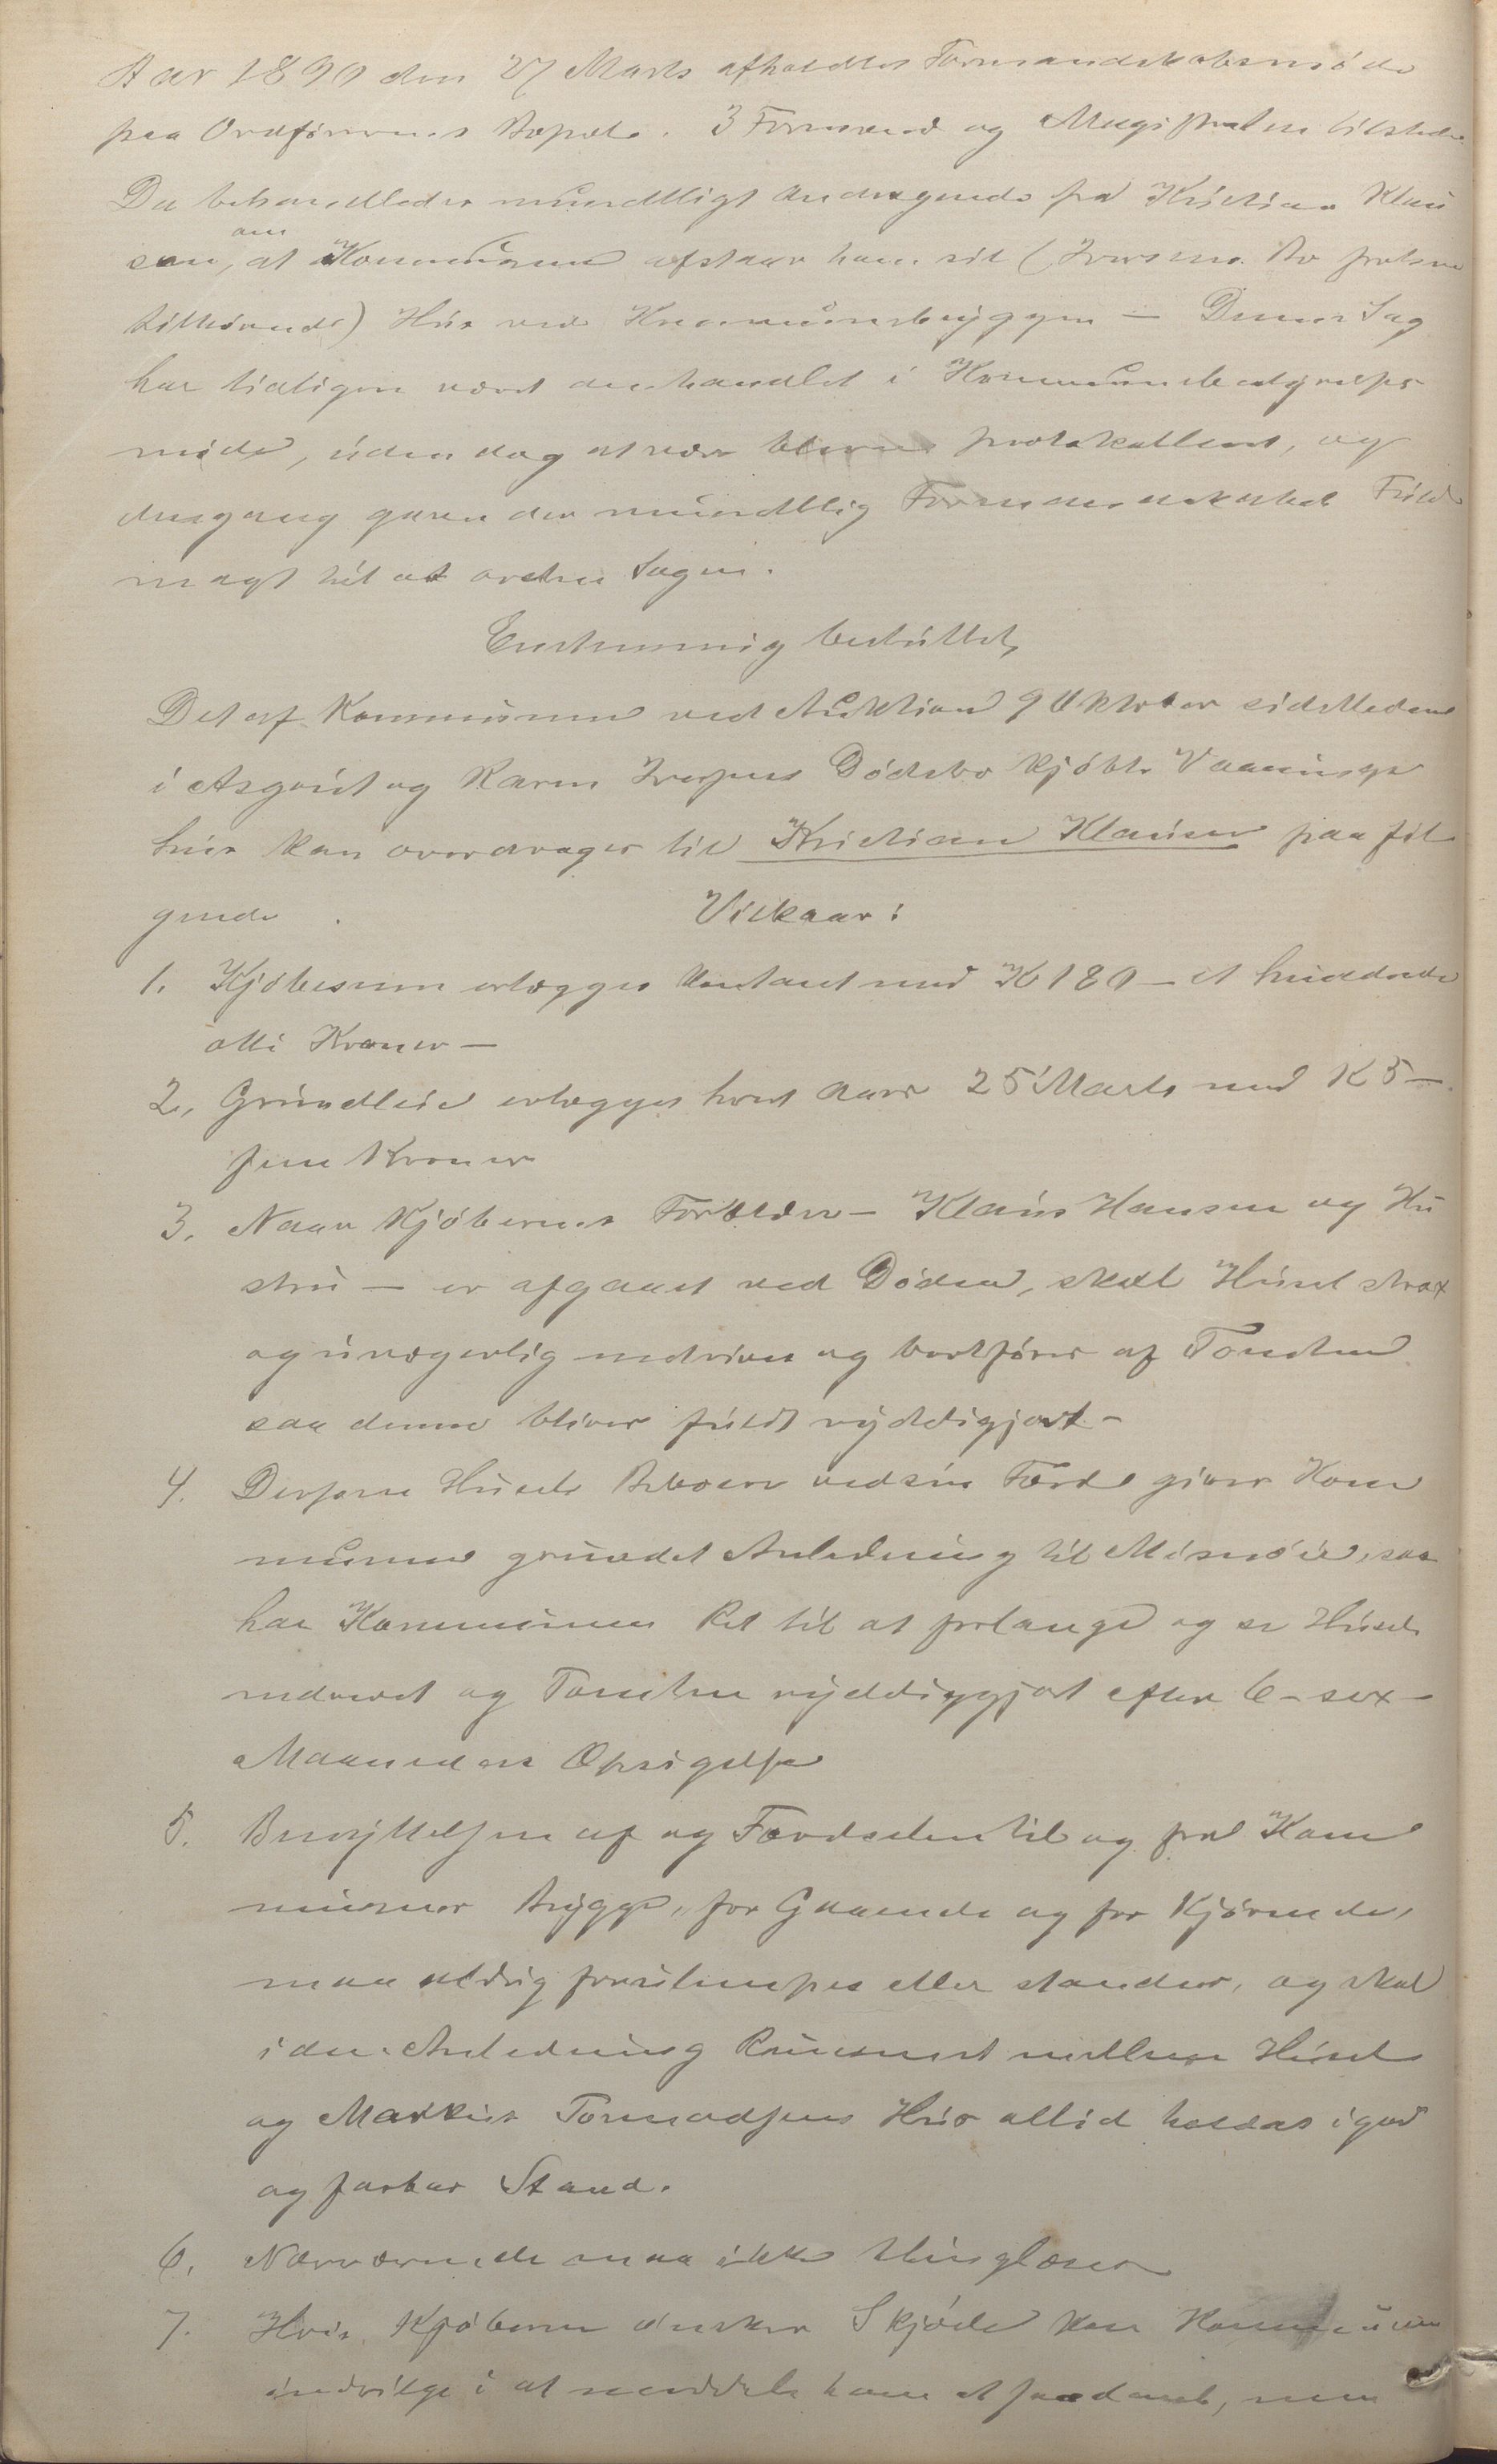 Aar 1890 den 27 Marts afholdtes Formandskabsmøde
paa Ordførerens Bopæl. 3 Formænd og Magistraten tilstede.
Da behandledes mundtligt Andragende fra Kristian Klau
sen, om at Kommunen afstaar ham sit (Iversens Bo forhen
tilhørende) Hus ved Kommunebryggen — Denne Sag
har tidligere været behandlet i Kommunebestyrelses
møde, uden dog at være bleven protokolleret, og
dengang gaves der mundtlig Formandskabet Fuld
magt til at ordne Sagen.
Enstemmig besluttet,
Det af Kommunen ved Auktion 9 Oktober sidstleden
i Asgaut og Karen Iversens Dødsbo kjøbte Vaanings
hus kan overdrages til Kristian Klausen paa føl
gende Vilkaar:
1. Kjøbesum erlægges kontant med K 180 — et hundrede
otti Kroner —
2, Grundleie erlægges hvert Aars 25 Marts med K 5 —
fem Kroner
3. Naar Kjøberens Forældre — Klaus Hansen og Hu
stru — er afgaaet ved Døden, skal Huset strax
og uvægerlig nedrives og bortføres af Tomten
saa denne bliver fuldt ryddiggjort —
4. Dersom Husets Beboere ved sin Færd giver Kom
munen grundet Anledning til Misnøie, saa
har Kommunen Ret til at forlange og se Huset
nedrevet og Tomten ryddiggjort efter 6 – sex –
Maaneders Opsigelse
5. Benyttelsen af og Færdselen til og fra Kom
munens Brygge, for Gaaende og for Kjørende,
maa aldrig forulempes eller standses, og skal
i den Anledning Rummet mellem Huset
og Markus Tormodsens Hus altid holdes i god
og farbar Stand.
6. Nærværende maa ikke thinglæses
7. Hvis Kjøberen ønsker Skjøde kan Kommunen
indvilge i at meddele ham et saadant, men